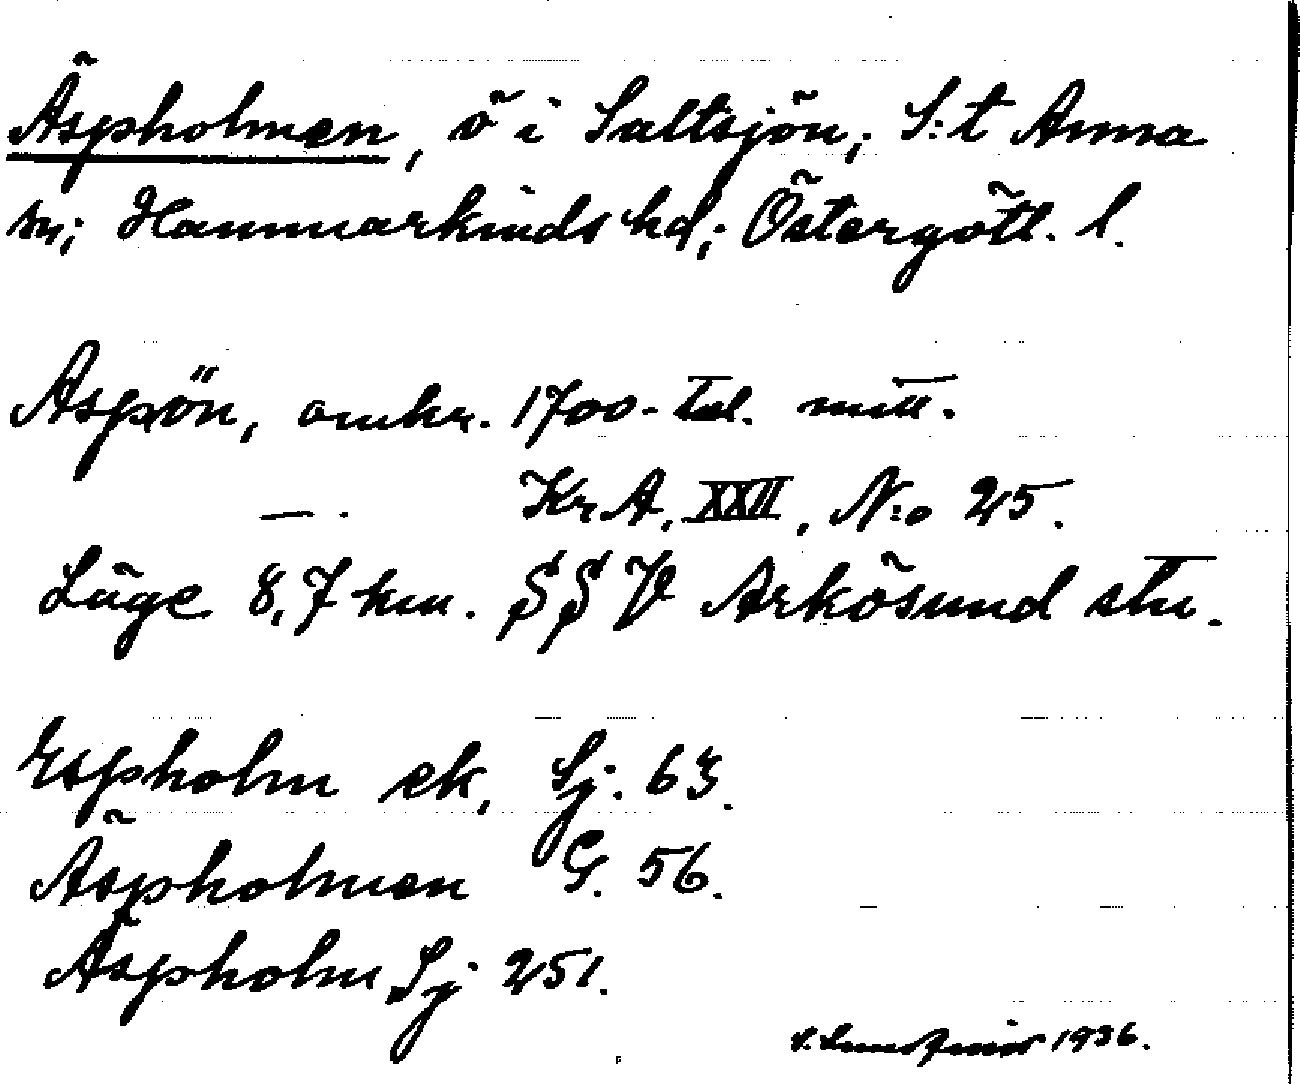 Äspholmen, ö i Saltsjön; S:t Anna
sn; Hammarkinds hd; Östergötl. l.
Aspön, omkr. 1700-tal. mitt.
— . KrA, XXII, N:o 25.
Läge 8,7 km. SSV Arkösund stn.
Espholm ek, Sj. 63.
Äspholmen G. 56.
Äspholm Sj 251.
1936.